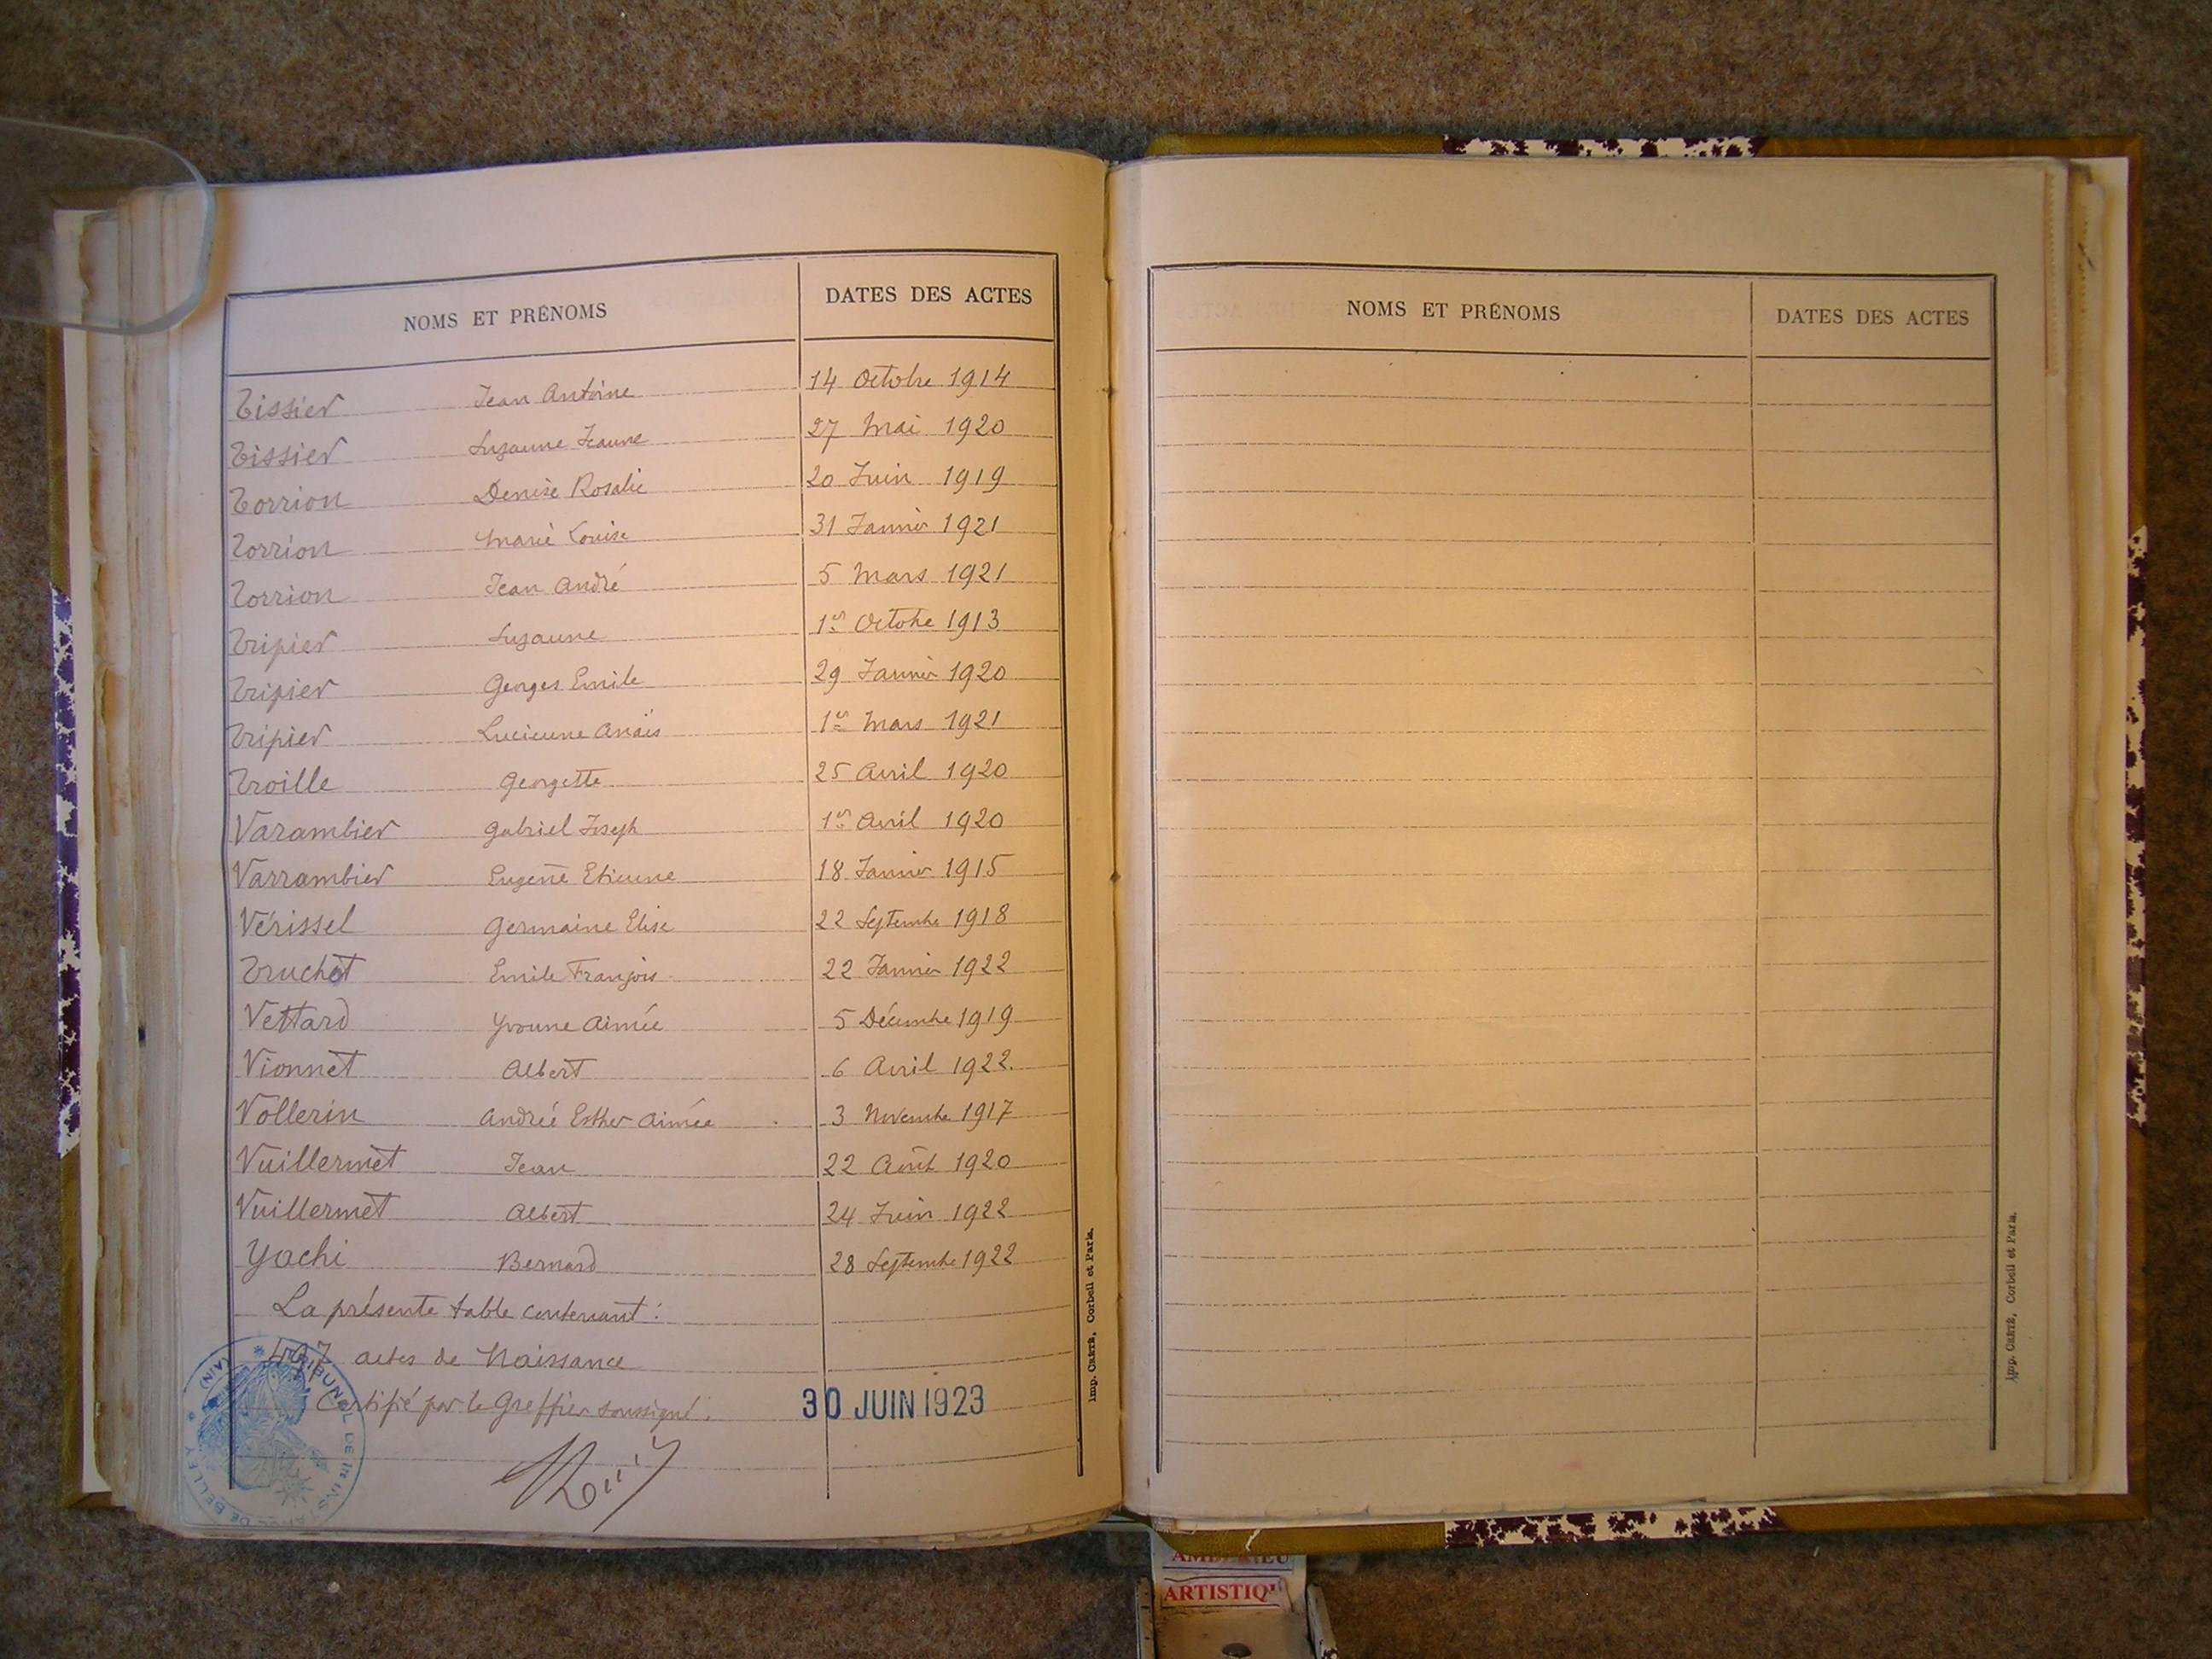 NOMS ET PRÉNOMS DATES DES ACTES
Tissier Jean Antoine 14 Octobre 1914
Tissier Suzanne Jeanne 27 Mai 1920
Torrion Denise Rosalie 20 Juin 1919
Torrion Marie Louise 31 Janvier 1921
Torrion Jean André 5 Mars 1921
Tripier Suzanne 1er Octobre 1913
Tripier Georges Emile 29 Janvier 1920
Tripier Lucienne Anaïs 1er Mars 1921
Troille Georgette 25 Avril 1920
Varambier Gabriel Joseph 1er Avril 1920
Varrambier Eugène Etienne 18 Janvier 1915
Vérissel Germaine Elise 22 Septembre 1918
Truchet Emile François 22 Janvier 1922
Vettard Yvonne Aimée 5 Décembre 1919
Vionnet Albert 6 Avril 1922
Vollerin Andrée Esther Aimée 3 Novembre 1917
Vuillermet Jean 22 Août 1920
Vuillermet Albert 24 Juin 1922
Yochi Bernard 28 Septembre 1922
La présente table contenant :
actes de Naissance
Certifié par le Greffier soussigné. 30 JUIN 1923
TRIBUNAL DE 1re INSTANCE DE BELLEY (AIN)
Imp. CRÉTÉ, Corbeil et Paris.
NOMS ET PRÉNOMS DATES DES ACTES
Imp. CRÉTÉ, Corbeil et Paris.
ARTISTIQU